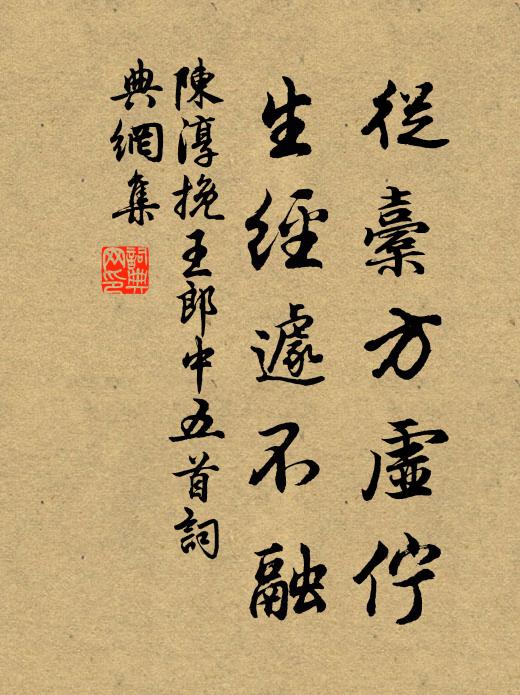 從橐方虛佇
生經遽不融
陳淳挽王郎中五首詞
典網集
詞典網印